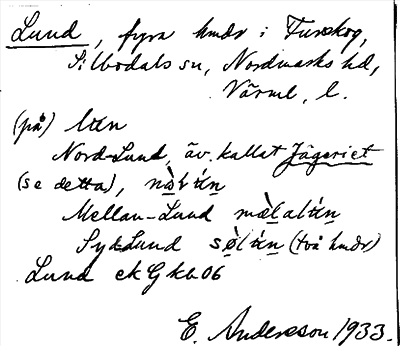 Lund, fyra hmdr i Turskog,
Silbodals sn, Nordmarks hd,
Värml. l.
(på) lɯn
Nord-Lund, äv. kallat Jägeriet
(se detta),
Mellan-Lund
Syd-Lund (två hmdr)
Lund ek G kb 06
E. Andersson 1933.